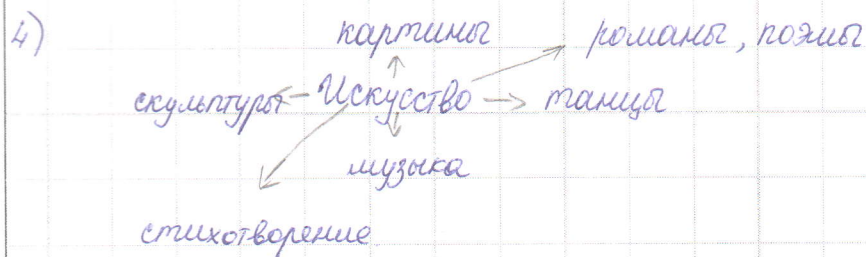 4) картины романы, поэмы
скульптуры Искусство танцы
музыка
стихотворение